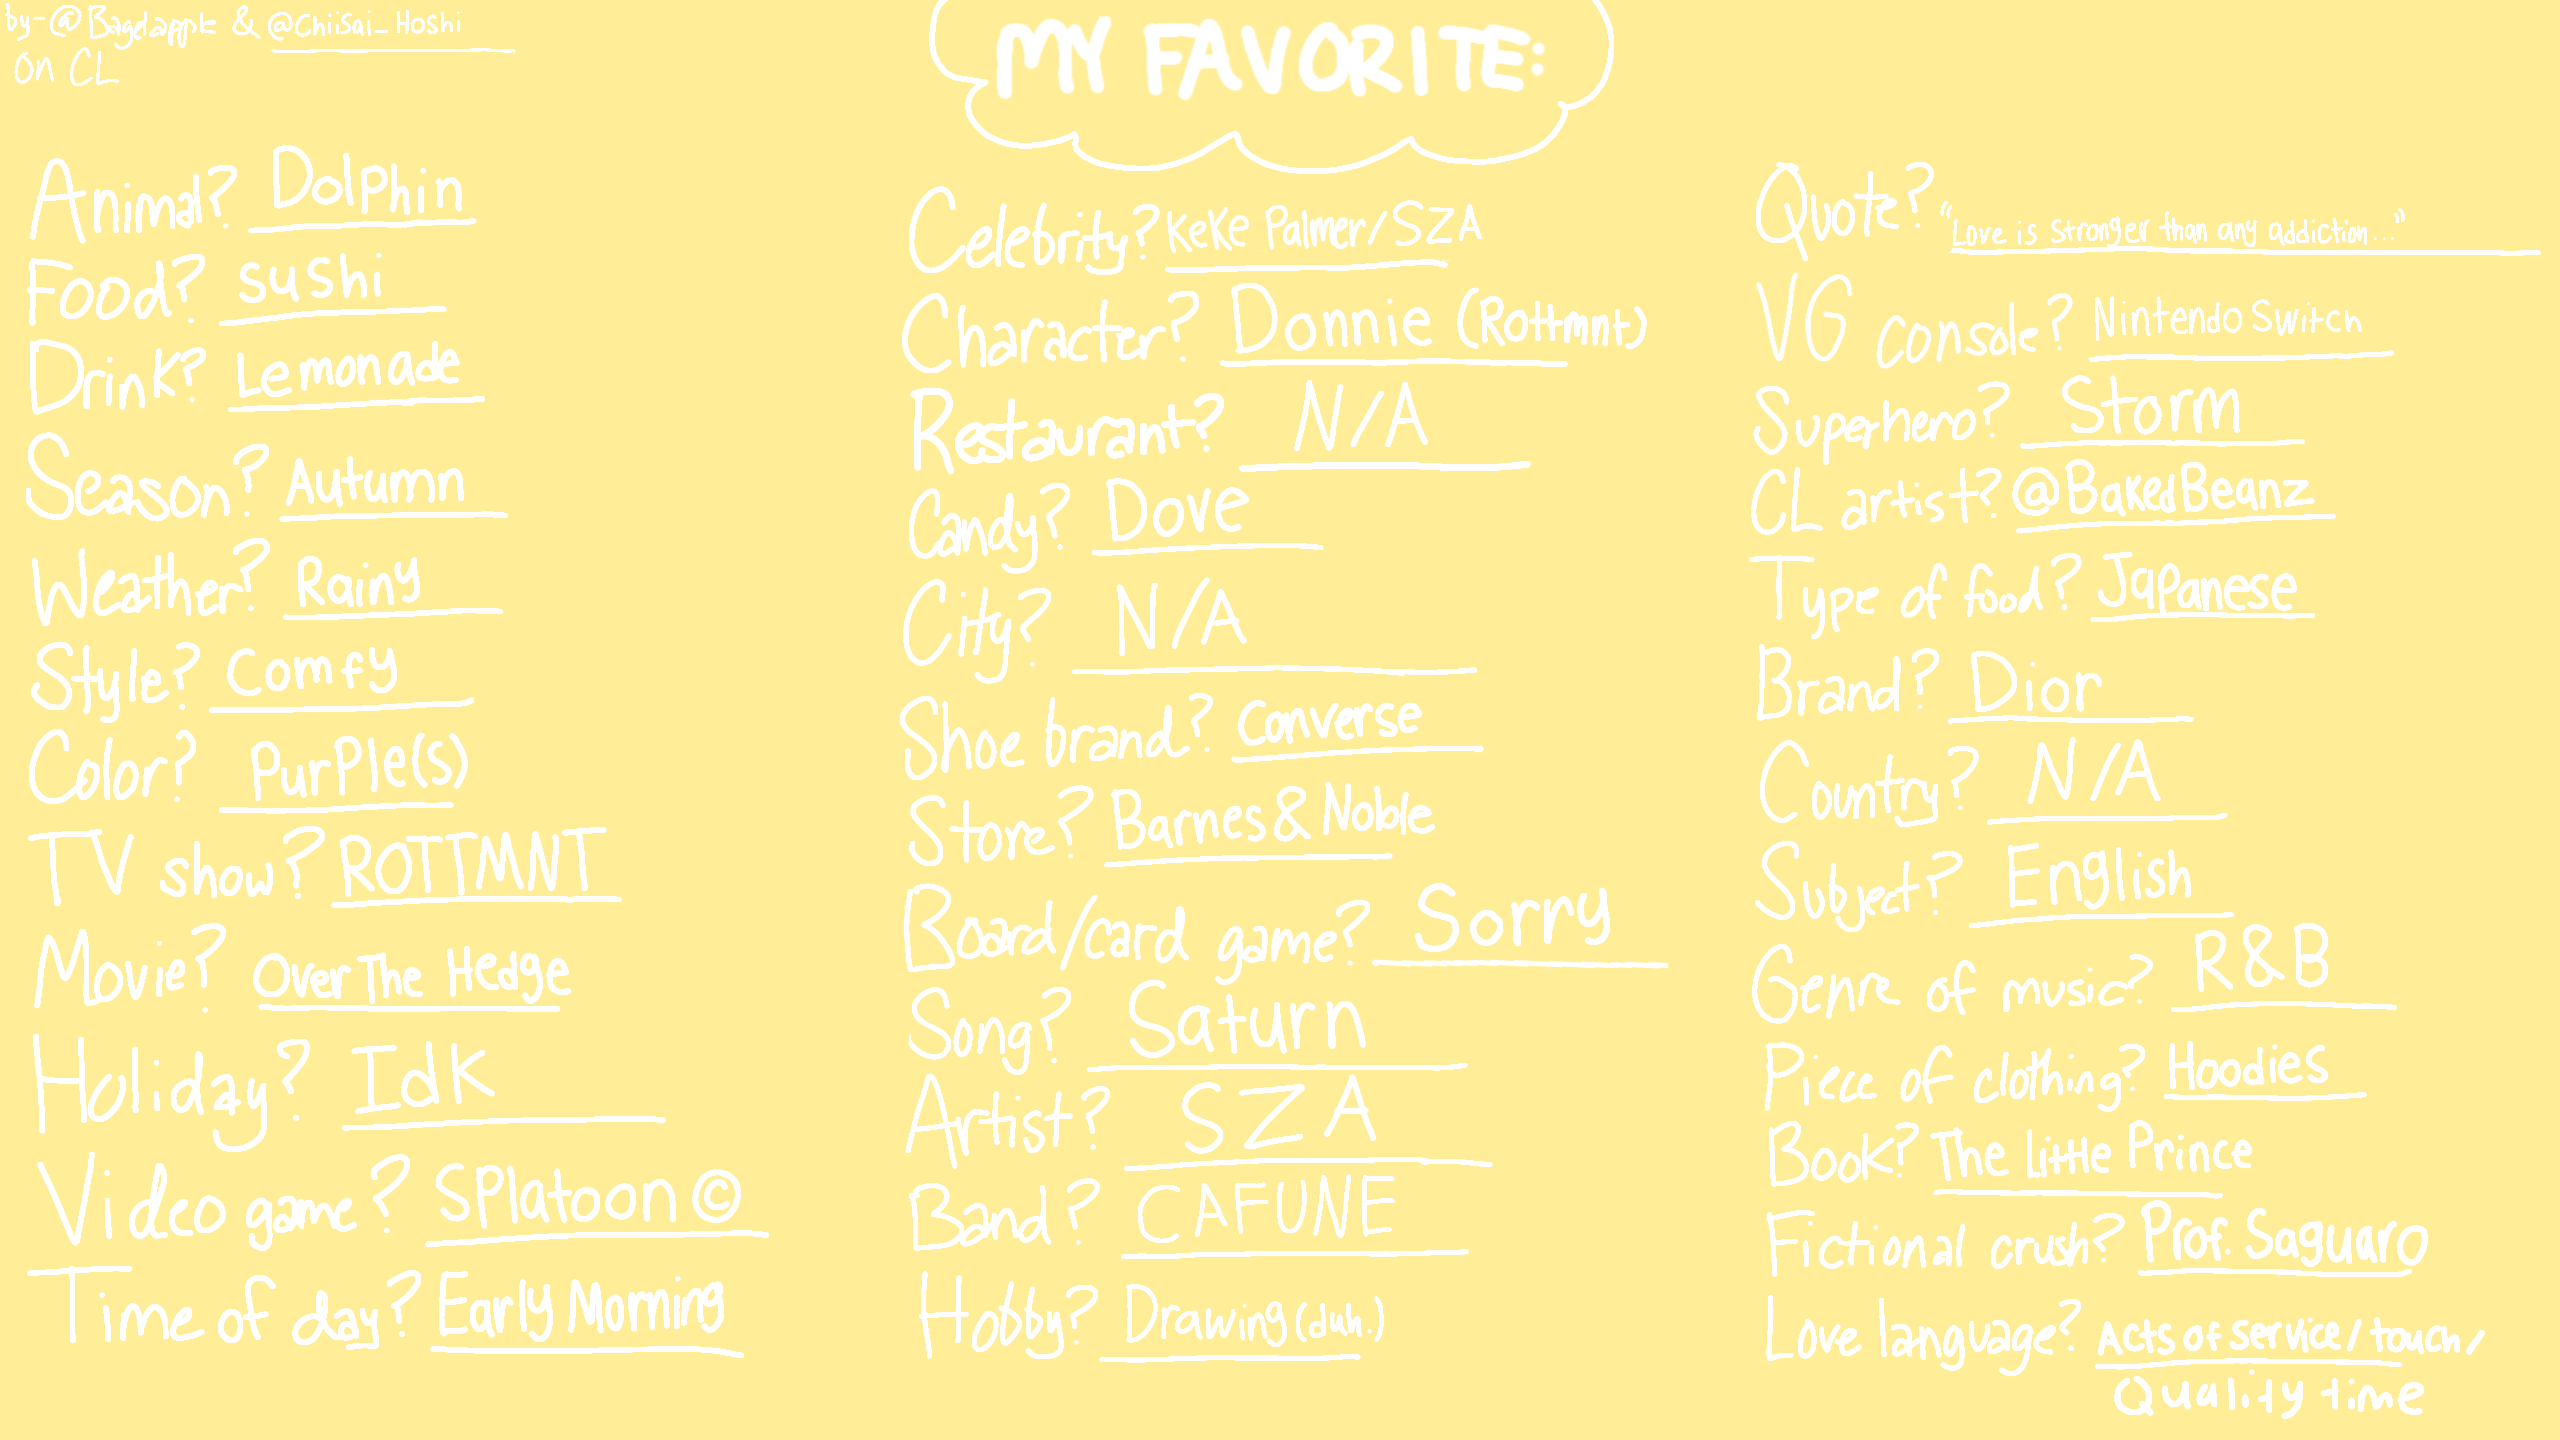 by-@Bagelapple & @Chiisai_Hoshi
on CL
MY FAVORITE:
Animal? Dolphin
Food? Sushi
Drink? Lemonade
Season? Autumn
Weather? Rainy
Style? Comfy
Color? Purple(s)
TV show? ROTTMNT
Movie? Over The Hedge
Holiday? Idk
Video game? Splatoon ©
Time of day? Early Morning
Celebrity? KeKe Palmer/SZA
Character? Donnie (Rottmnt)
Restaurant? N/A
Candy? Dove
City? N/A
Shoe brand? Converse
Store? Barnes & Noble
Board/card game? Sorry
Song? Saturn
Artist? SZA
Band? CAFUNE
Hobby? Drawing (duh.)
Quote? "Love is stronger than any addiction..."
VG console? Nintendo Switch
Superhero? Storm
CL artist? @BakedBeanz
Type of food? Japanese
Brand? Dior
Country? N/A
Subject? English
Genre of music? R&B
Piece of clothing? Hoodies
Book? The Little Prince
Fictional crush? Prof. Saguaro
Love language? Acts of service/touch/
Quality time